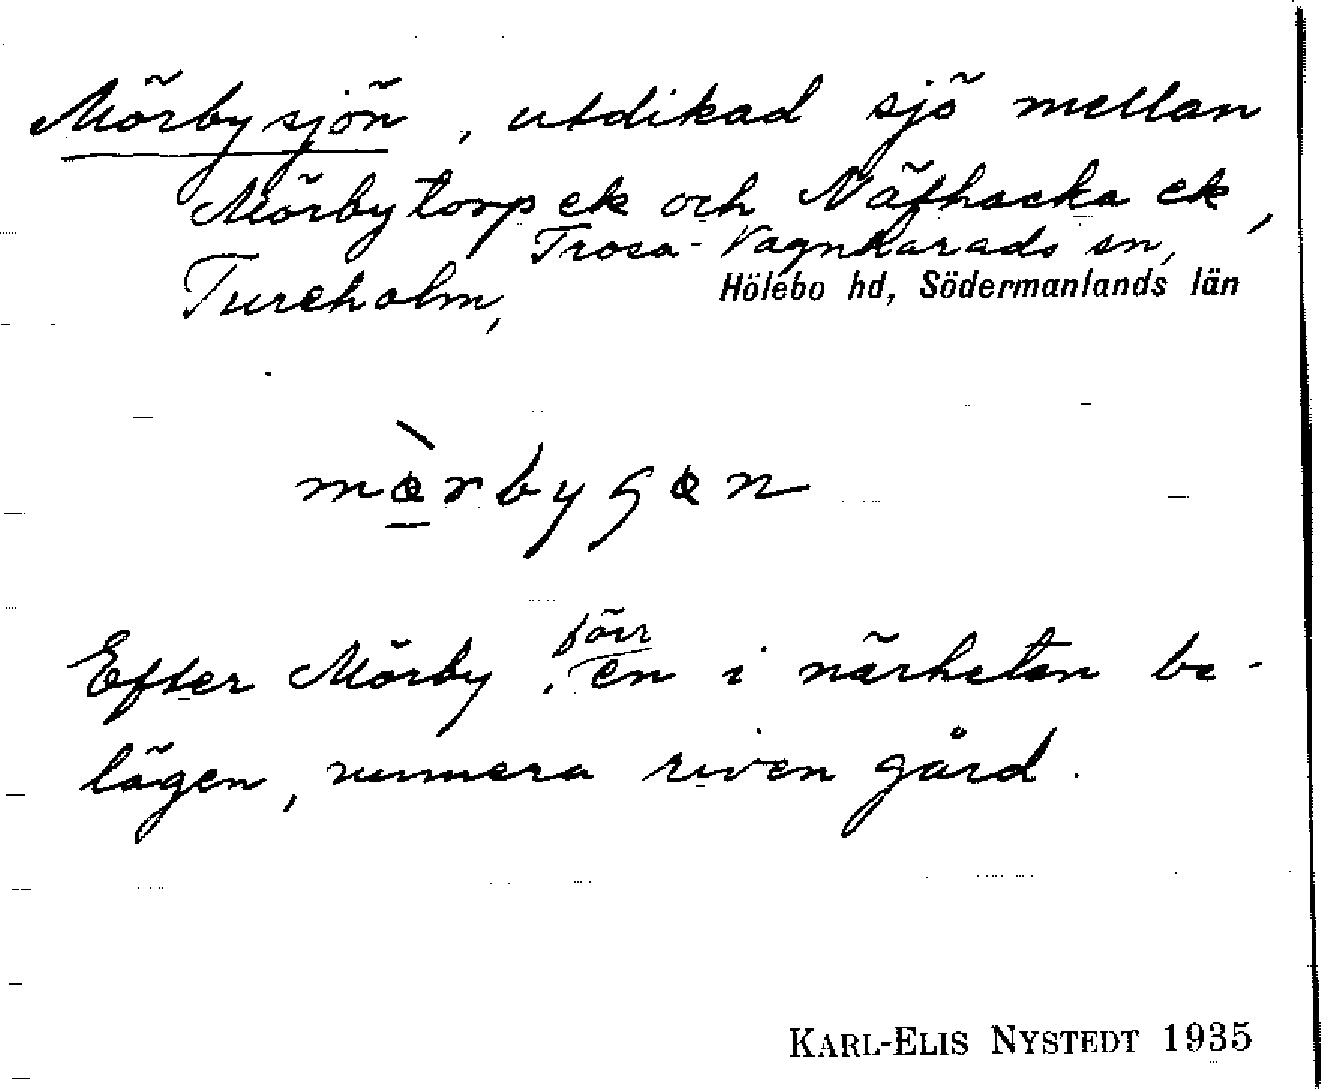 Mörbysjön, utdikad sjö mellan
Mörbytorp ek och Näfhacka ek,
Trosa-Vagnharads sn,
Tureholm, Hölebo hd, Södermanlands län
Efter Mörby, förr
en i närheten be-
lägen, numera riven gård.
KARL-ELIS NYSTEDT 1935